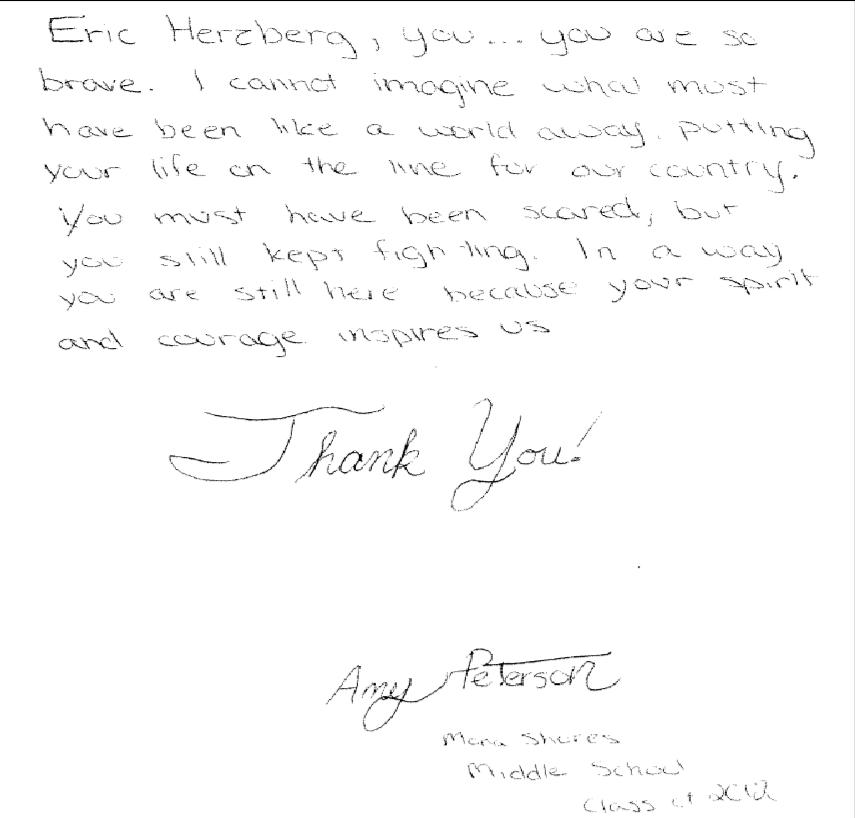 Eric Herzberg, you... you are so
brave. I cannot imagine what must
have been like a world away, putting
your life on the line for our country.
You must have been scared, but
you still kept fighting. In a way
you are still here because your spirit
and courage inspires us
Thank You!
Amy Peterson
Mona Shores
Middle School
Class of 2012